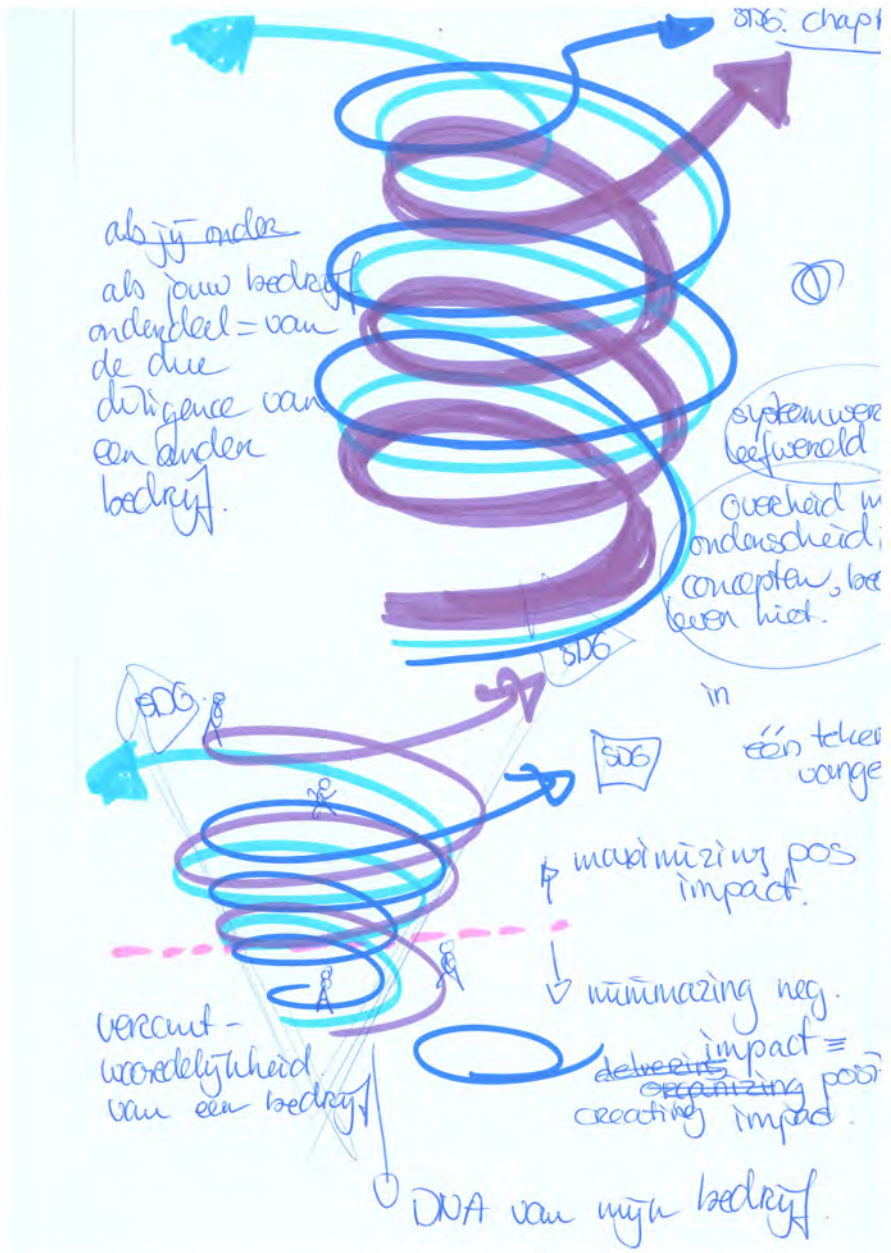 SDG: chapt
als jij onder
als jouw bedrijf
onderdeel = van
de due
diligence van
een ander
bedrijf.
systemwer
leefwereld
overheid m
onderscheid i
concepten, be
leven niet.
SDG
SDG
in
SDG
één teken
vange
maximizing pos
impact.
minimazing neg.
impact =
delivering
organizing posi
creating impac
verant-
woordelijkheid
van een bedrijf
DNA van mijn bedrijf.